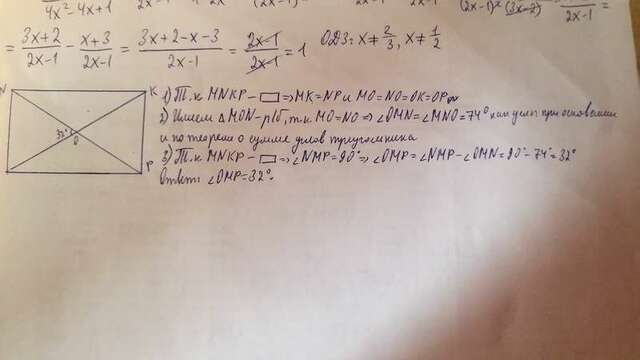 4x²-4x+1
(2x-1)² (3x-2)
2x-1 =
= \frac{3x+2}{2x-1} - \frac{x+3}{2x-1} = \frac{3x+2-x-3}{2x-1} = \frac{2x-1}{2x-1} = 1 ОДЗ: x≠\frac{2}{3}, x≠\frac{1}{2}
N K
32° O
P
1) Т.к. MNKP - ▭ ⇒ MK=NP и MO=NO=OK=OP
2) Имеем ΔMON - р/б, т.к. MO=NO ⇒ ∠OMN=∠MNO=74° как углы при основании
и по теореме о сумме углов треугольника.
3) Т.к. MNKP - ▭ ⇒ ∠NMP=90° ⇒ ∠OMP=∠NMP-∠OMN=90°-74°=32°
Ответ: ∠OMP=32°.